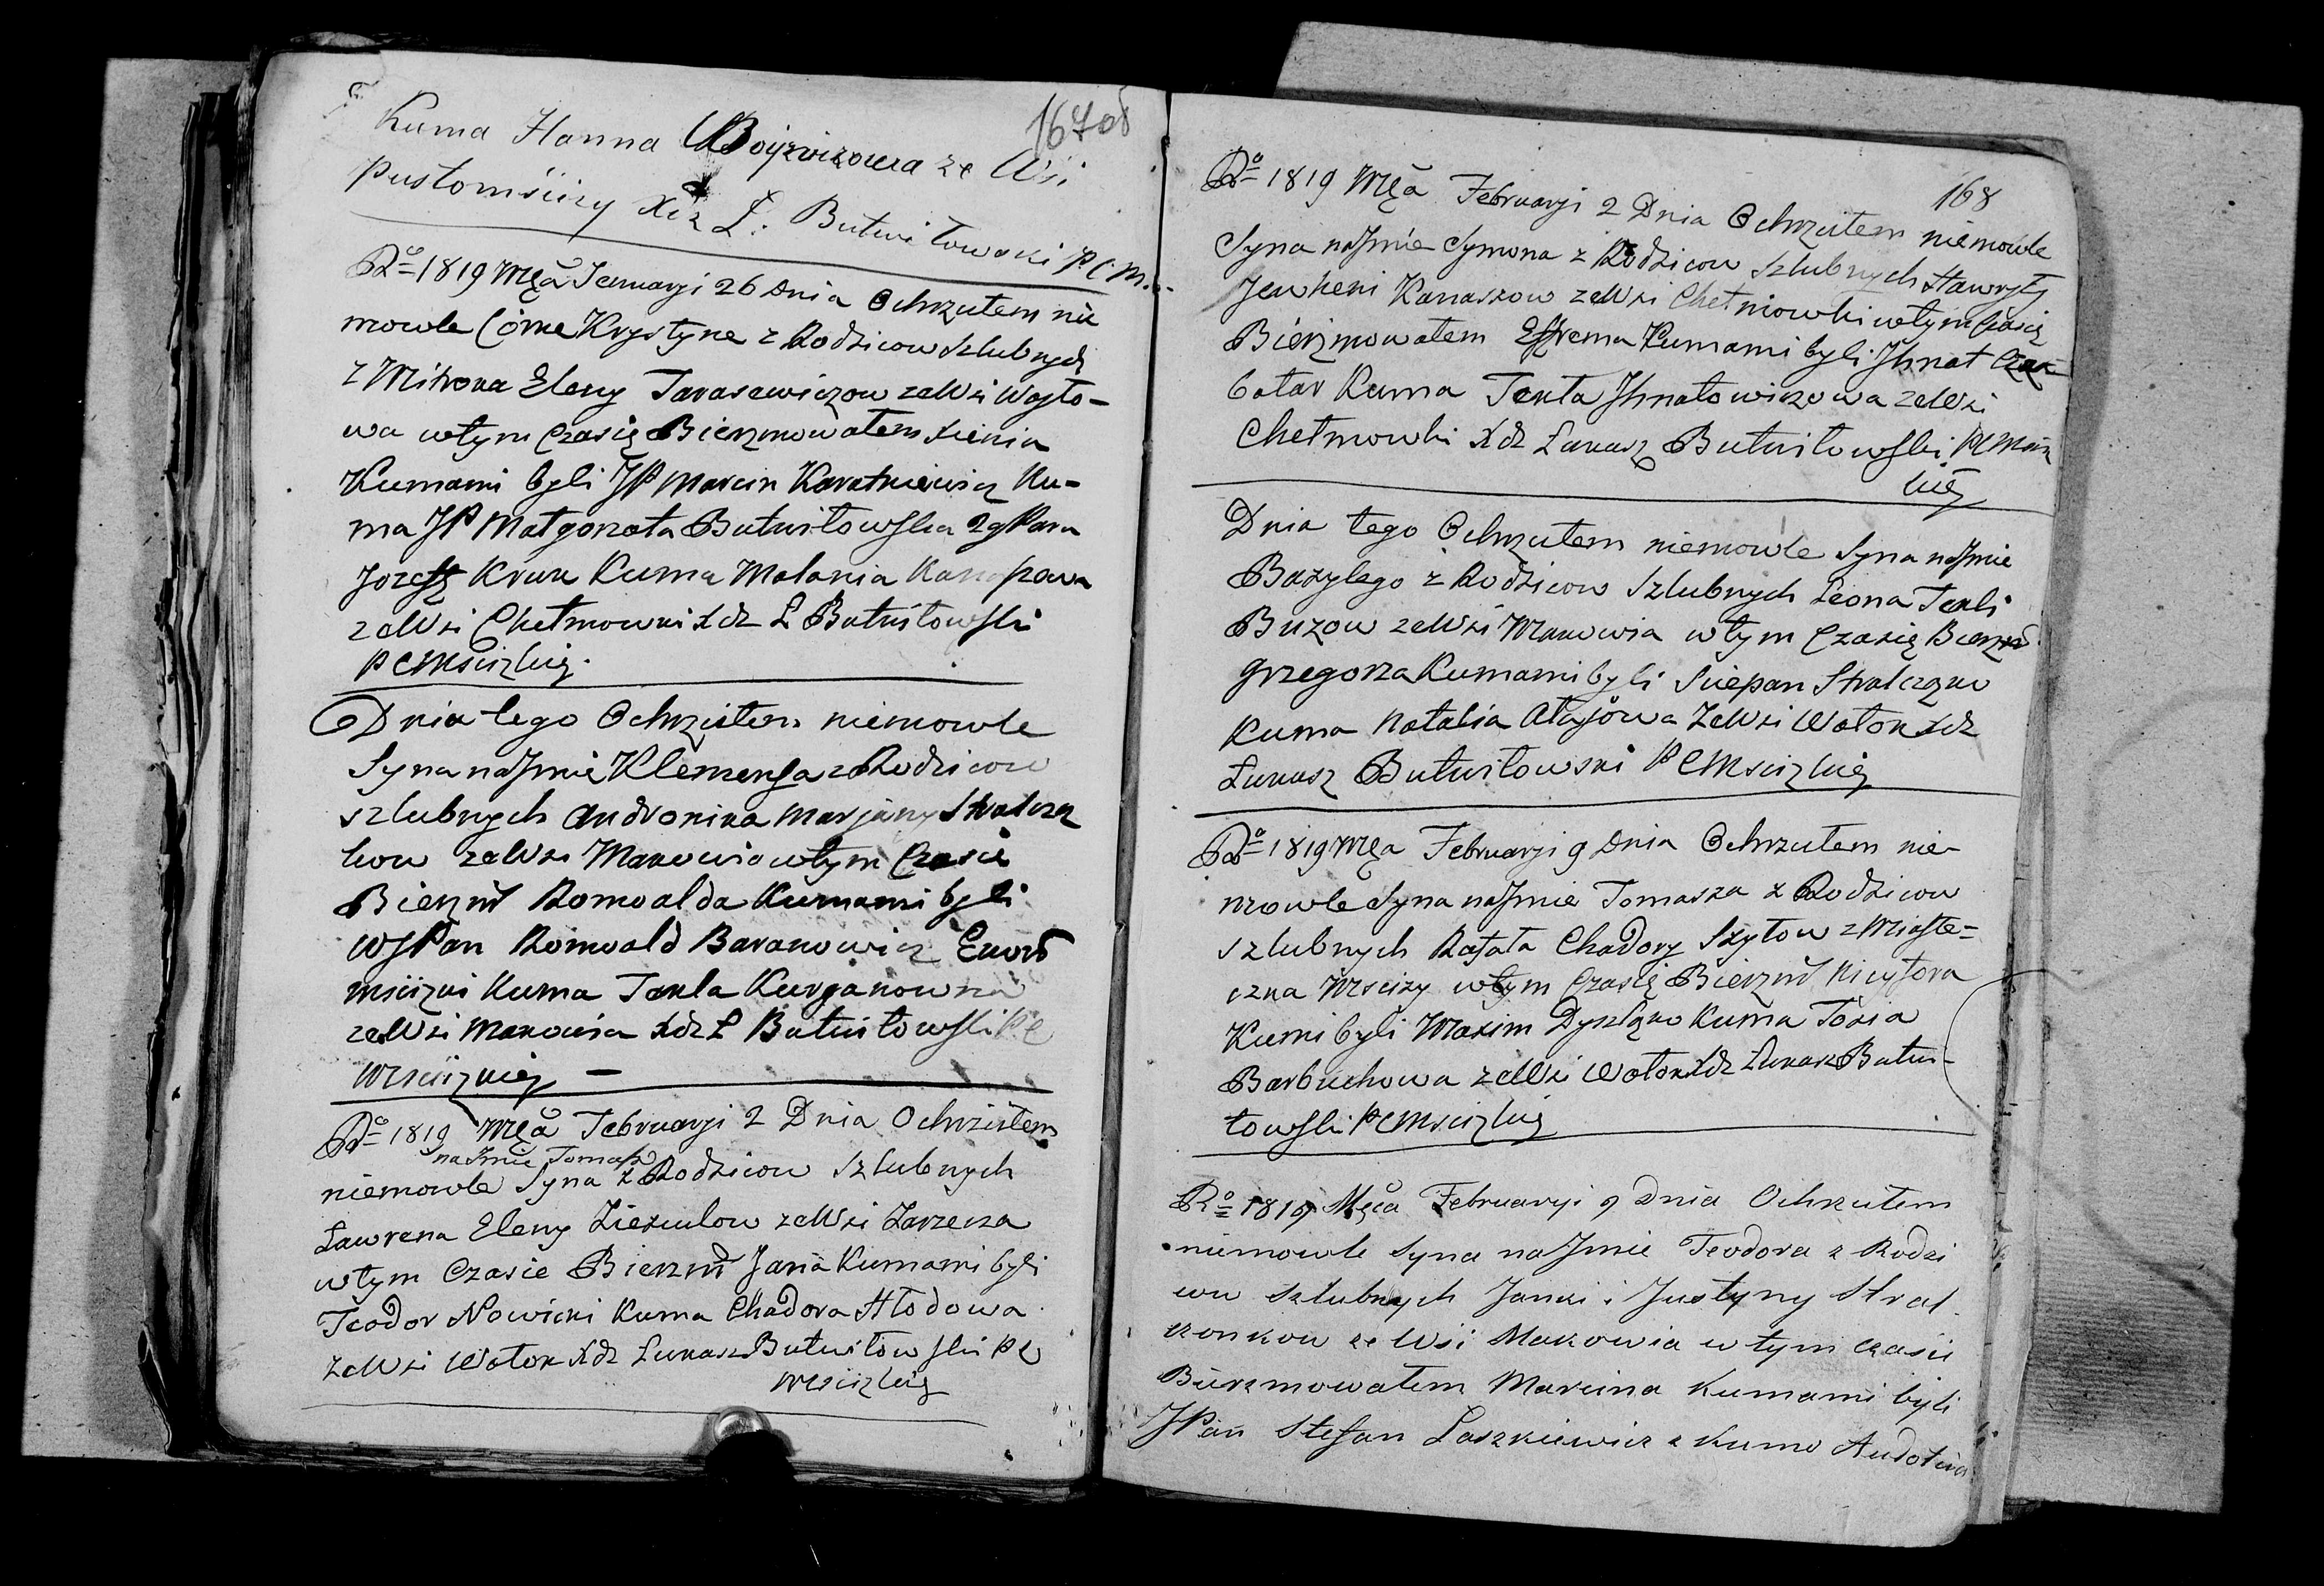 167об
Kuma Hanna Woyzizowa ze Wsi
Pustomściży Xdz Ł. Butwiłowski P. C. M.
Ro 1819 Mca Januaryi 26 Dnia Ochrzciłem nie
mowle Córke Krystyne z Rodzicow Szlubnych
z Mitrona Eleny Tarasewiczow ze Wsi Woyto-
wa w tym Czasie Bierzmowałem Xienia
Kumami byli JP Marcin Karatkiewicz Ku-
ma JP Małgorzata Butwiłowska 2g Para
Jozeff Kruk Kuma Malania
ze Wsi Chełmowki Xdz Ł Butwiłowski
P C Mściżkiej.
Dnia tego Ochrzciłem niemowle
Syna na Jmie Klemensa z Rodzicow
szlubnych Andronika Marjany Stralcza
kow ze Wsi Makowia w tym Czasie
Bierzm Romoalda Kumami byli
WJPan Romoald Baranowicz
Mściżki Kuma Tekla Kurganowna
ze Wsi Makowia Xdz Ł Butwiłowski P C
Mściżkiej —
Ro 1819 Mca Februaryi 2 Dnia Ochrzciłem
na Jmie Tomasz
niemowle Syna z Rodzicow Szlubnych
Ławrena Eleny Ziezulow ze Wsi Zarzecza
w tym Czasie Bierzm Jana Kumami byli
Teodor Nowicki Kuma Chadora Hłodowa
ze Wsi Wołok Xdz Łukasz Butwiłowski P C
Mściżkiej
168
Ro 1819 Mca Februaryi 2 Dnia Ochrzciłem niemowle
Syna na Jmie Symona z Rodzicow Szlubnych Hawryły
Jewheni Kanaszow ze Wsi Chełmowki w tym Czasie
Bierzmowałem Effrema Kumami byli Jhnat Czar-
botar Kuma Tekla Jhnatowiczowa ze Wsi
Chełmowki Xdz Łukasz Butwiłowski P C Mściż
kiej
Dnia tego Ochrzciłem niemowle Syna na Jmie
Bazylego z Rodzicow Szlubnych Leona Tekli
Buzow ze Wsi Makowia w tym Czasie Bierzm
Grzegorza Kumami byli Sciepan Stralczonok
Kuma Natalia Atajowa ze Wsi Wołok Xdz
Łukasz Butwiłowski P C Mściżkiej
Ro 1819 Mca Februaryi 9 Dnia Ochrzciłem nie-
mowle Syna na Jmie Tomasza z Rodzicow
Szlubnych Rafała Chadory Szytow z Miaste-
czka Mściży w tym Czasie Bierzm Nicyfora
Kumi byli Maxim Kuma Tózia
Barbuchowa ze Wsi Wołok Xdz Łukasz Butwi-
łowski P C Mściżkiej
Ro 1819 Mca Februaryi 9 Dnia Ochrzciłem
niemowle Syna na Jmie Teodora z Rodzi
ców Szlubnych Janki i Justyny Stral-
czonkow ze Wsi Makowia w tym czasie
Bierzmowałem Marcina Kumami byli
JPan Stefan Laszkiewicz z Kumo Audotia